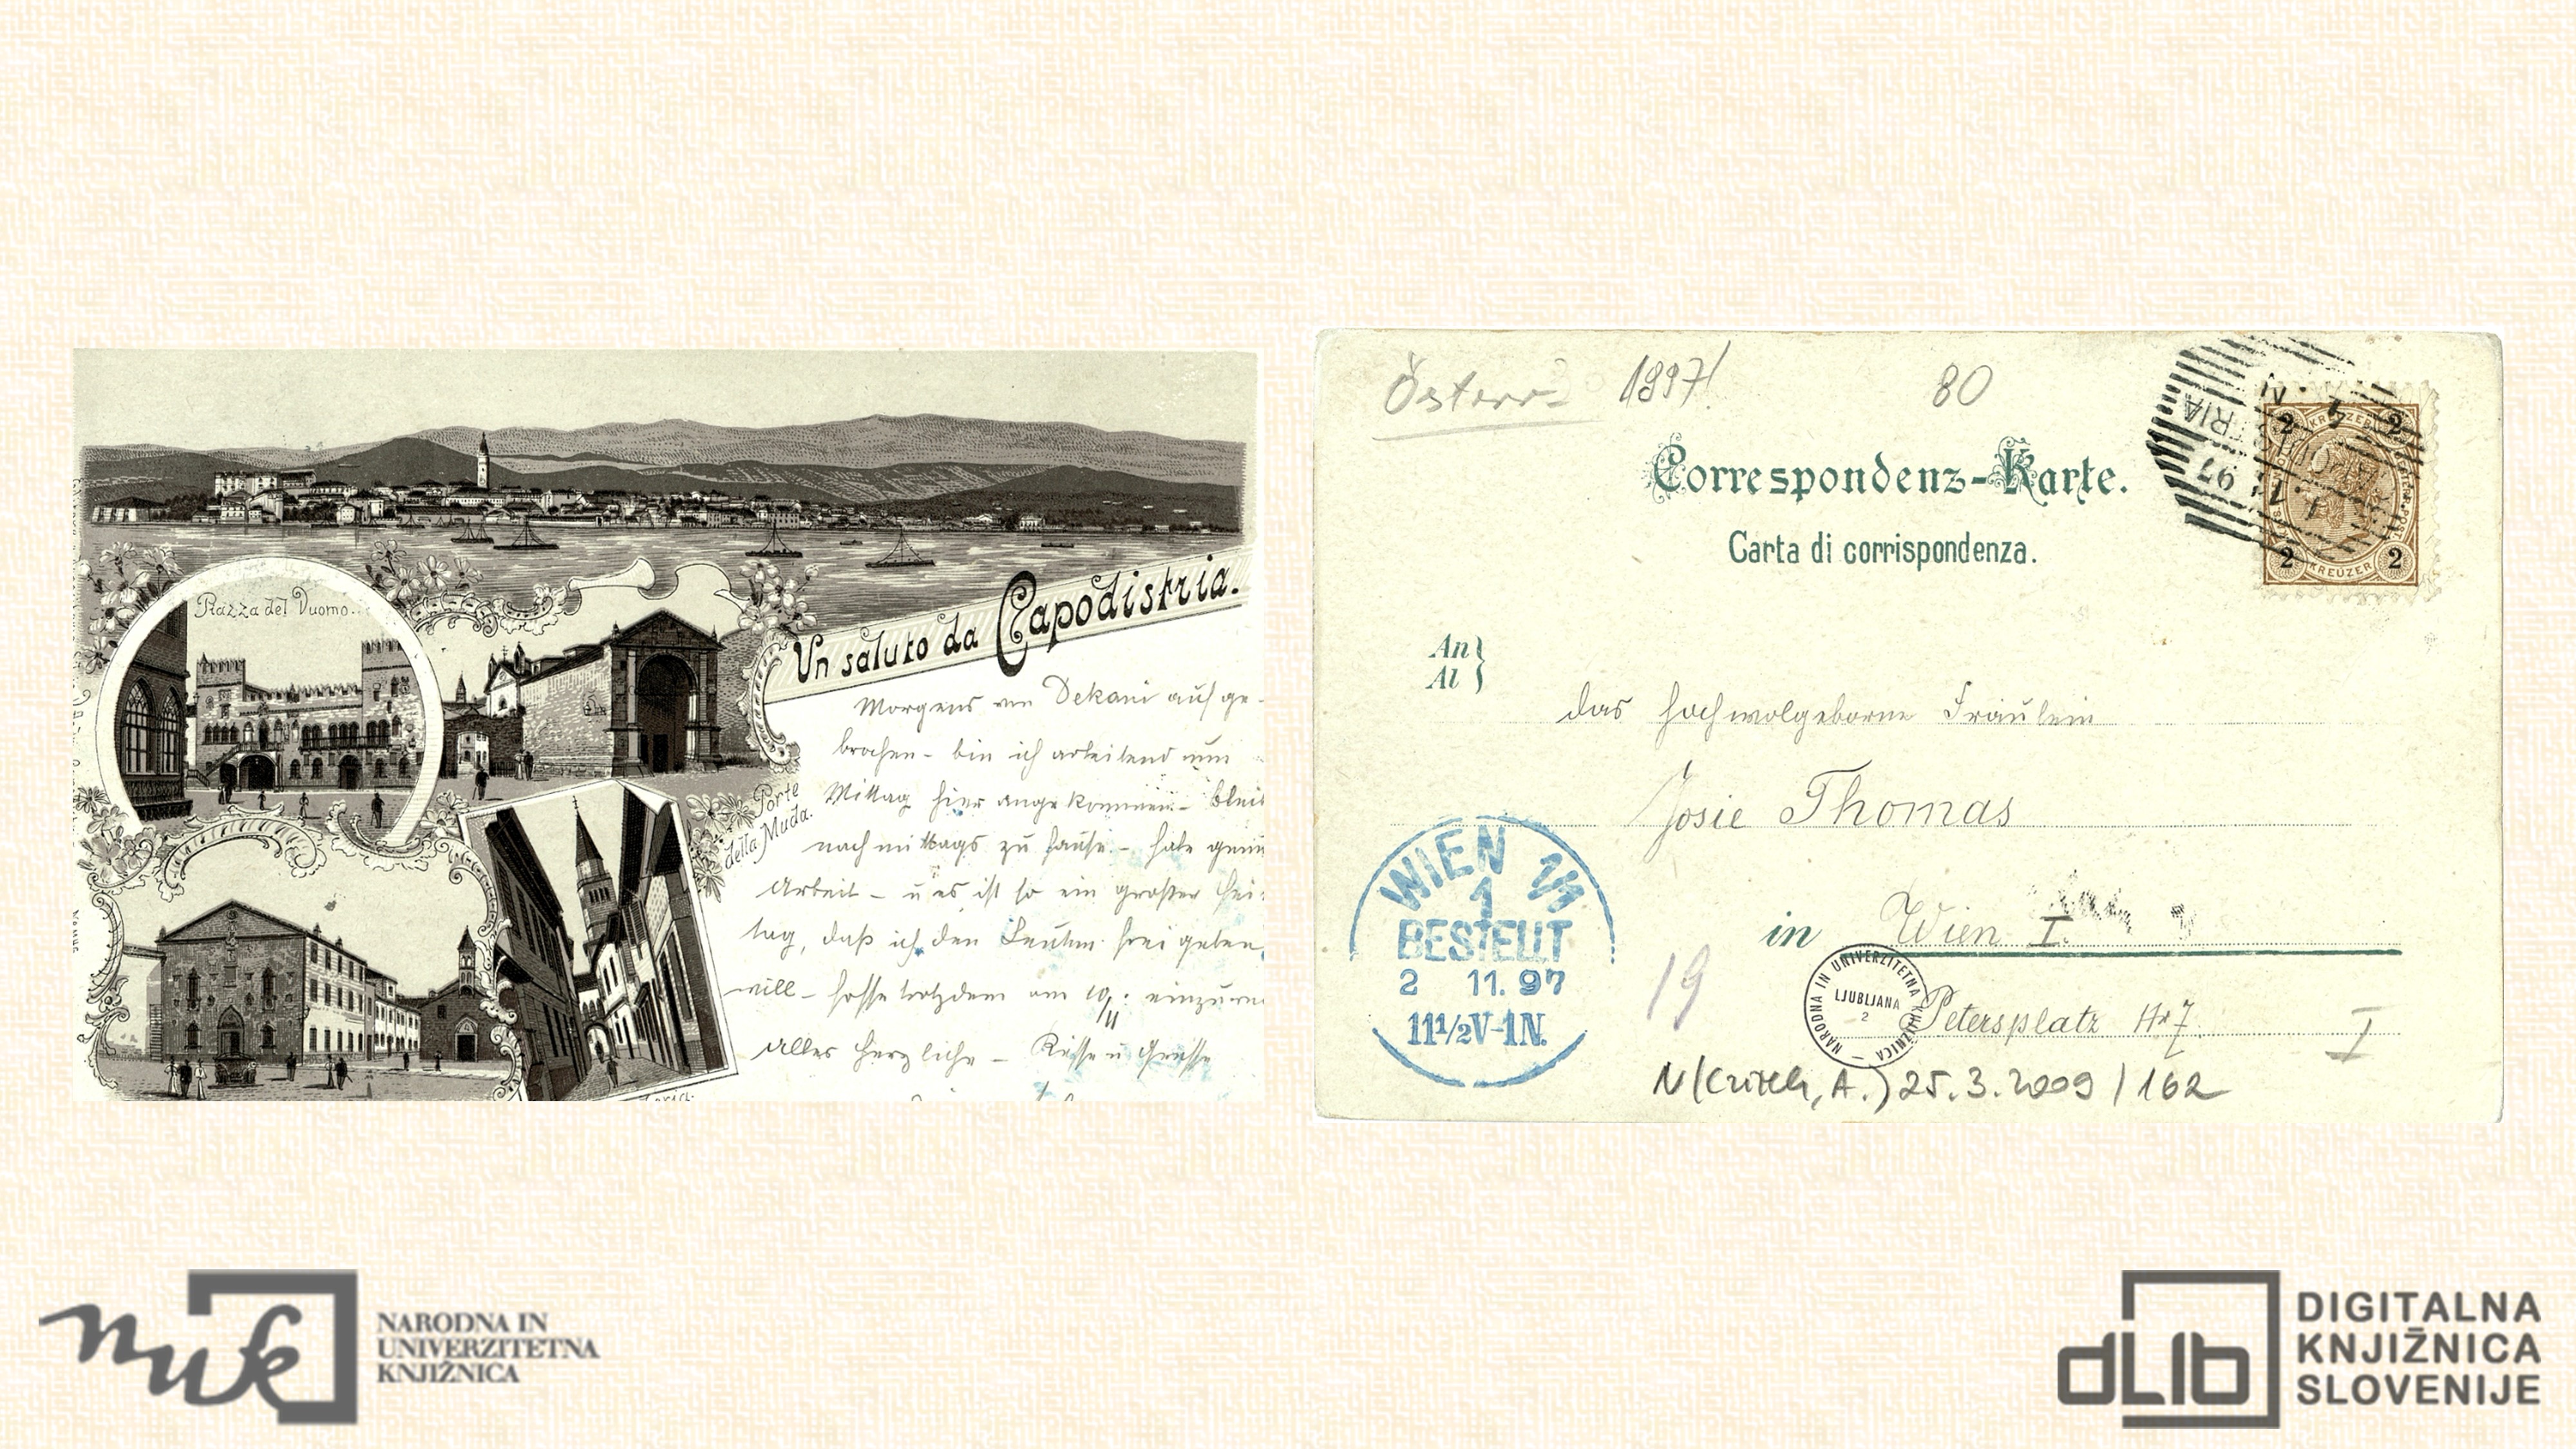 Piazza del Duomo.
Un saluto da Capodistria.
Porte
della Muda.
Morgens von Dekani aufge-
brochen - bin ich arbeitend um
Mittag hier angekommen - bleib
nachmittags zu Hause - habe genu
Arbeit - u es ist so ein großer Fei-
tag, daß ich den Leuten frei geben
will - hoffe trotzdem am 10/11: einzu
Alles herzliche - Küsse u Grüsse
Österr 1897! 80
Correspondenz-Karte.
Carta di corrispondenza.
An
Al
das hochwolgeborne Fräulein
Josie Thomas
in Wien I.
Petersplatz Nr 7.
I
19
WIEN 1/1
1
BESTELLT
2 11. 97
11½V-1N.
TRIA
97
2 KREUZER 2
2 KREUZER 2
NARODNA IN UNIVERZITETNA KNJIŽNICA
LJUBLJANA
2
25.3.2009/162
nuk
NARODNA IN
UNIVERZITETNA
KNJIŽNICA
dLib
DIGITALNA
KNJIŽNICA
SLOVENIJE